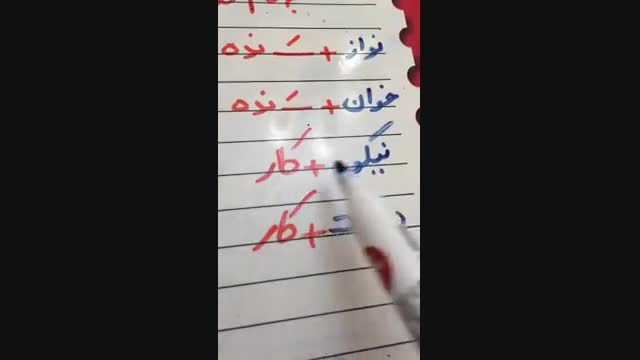 نواز + ـَ نده
خوان + ـَ نده
نیکو + کار
+ کار